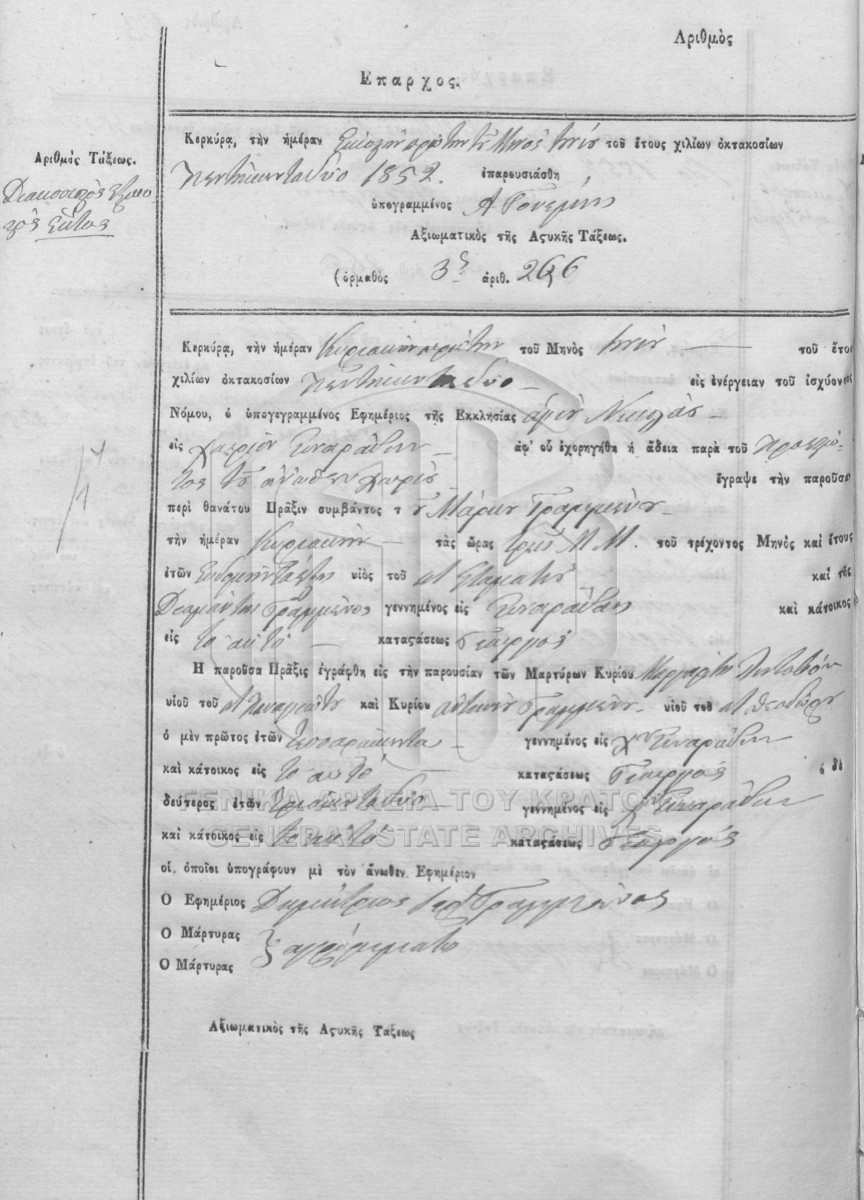 Αριθμὸς
Επαρχος.
Αριθμὸς Τάξεως.
Διακοσιοστὸς ἑξηκο
στὸς ἕκτος
Κερκύρα, τὴν ἡμέραν εἰκοστὴν πρώτην τοῦ Μηνὸς τοῦ έτους χιλίων ὀκτακοσίων
πεντήκοντα δύο 1852. ἐπαρουσιάσθη
ὑπογραμμένος Α
Αξιωματικὸς τῆς Αςυκῆς Τάξεως.
(ὁρμαθὸς 3ς ἀριθ. 266)
Κερκύρᾳ, τὴν ἡμέραν Κυριακὴν πρώτην τοῦ Μηνὸς τοῦ έτου
χιλίων ὀκτακοσίων πεντήκοντα δύο εἰς ἐνέργειαν τοῦ ἰσχύοντος
Νόμου, ὁ ὑπογεγραμμένος Εφημέριος τῆς Εκκλησίας ἁγίου Νικολάου
εἰς χωρίον Συναράδων ἀφ' οὗ ἐχορηγήθη ἡ άδεια παρὰ τοῦ Προεστῶ-
τος τοῦ ἄνωθεν χωρίου έγραψε τὴν παροῦσαν
περὶ θανάτου Πρᾶξιν συμβάντος τοῦ Μάρκου Γραμμένου
τὴν ἡμέραν Κυριακὴν τὰς ὥρας τρεῖς Π.Μ. τοῦ τρέχοντος Μηνὸς καὶ έτους
ἐτῶν υἱὸς τοῦ ποτ Σταμάτη καὶ τῆς
Διαμάντης Γραμμένος γεννημένος εἰς Συναράδες καὶ κάτοικος
εἰς τὸ αὐτὸ καταςάσεως Γεωργὸς
Η παροῦσα Πρᾶξις ἐγράφθη εἰς τὴν παρουσίαν τῶν Μαρτύρων Κυρίου Μαργαρίτη
υἱοῦ τοῦ ποτ Παναγιώτη καὶ Κυρίου Αντωνίου Γραμμένου υἱοῦ τοῦ ποτ Θεοδώρου
ὁ μὲν πρῶτος ἐτῶν τεσσαράκοντα γεννημένος εἰς χ Συναράδων
καὶ κάτοικος εἰς τὸ αὐτὸ καταςάσεως Γεωργὸς ὁ δὲ
δεύτερος ἐτῶν τριάκοντα δύο γεννημένος εἰς χ Συναράδων
καὶ κάτοικος εἰς τὸ αὐτὸ καταςάσεως Γεωργὸς
οἱ ὁποῖοι ὑπογράφουν μὲ τὸν άνωθεν Εφημέριον
Ο Εφημέριος Δημήτριος Ιερεὺς Γραμμένος
Ο Μάρτυρας ἀγράμματοι
Ο Μάρτυρας
Αξιωματικὸς τῆς Αςυκῆς Τάξεως
ΓΕΝΙΚΑ ΑΡΧΕΙΑ ΤΟΥ ΚΡΑΤΟΥΣ
GENERAL STATE ARCHIVES